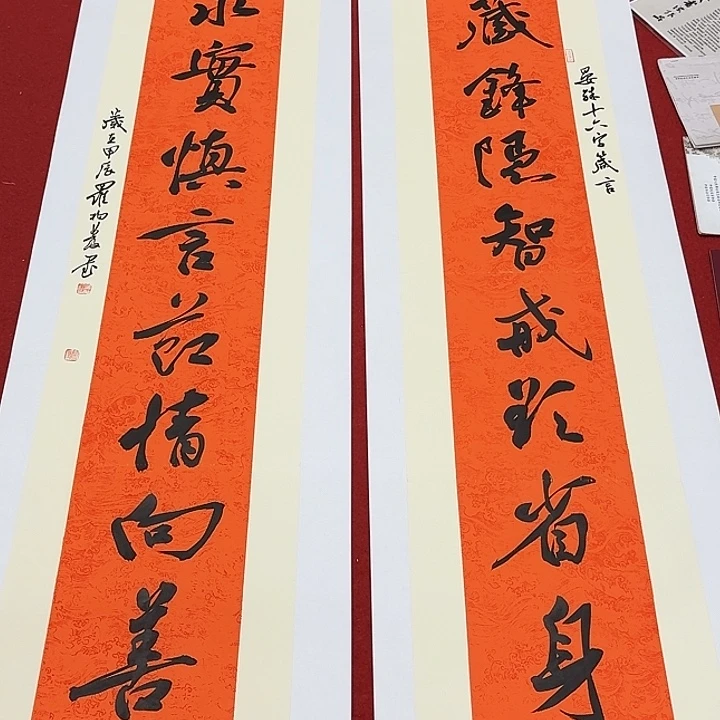 晏殊十六字箴言
藏鋒隱智戒欲省身
求實慎言節情向善
歲在甲辰羅